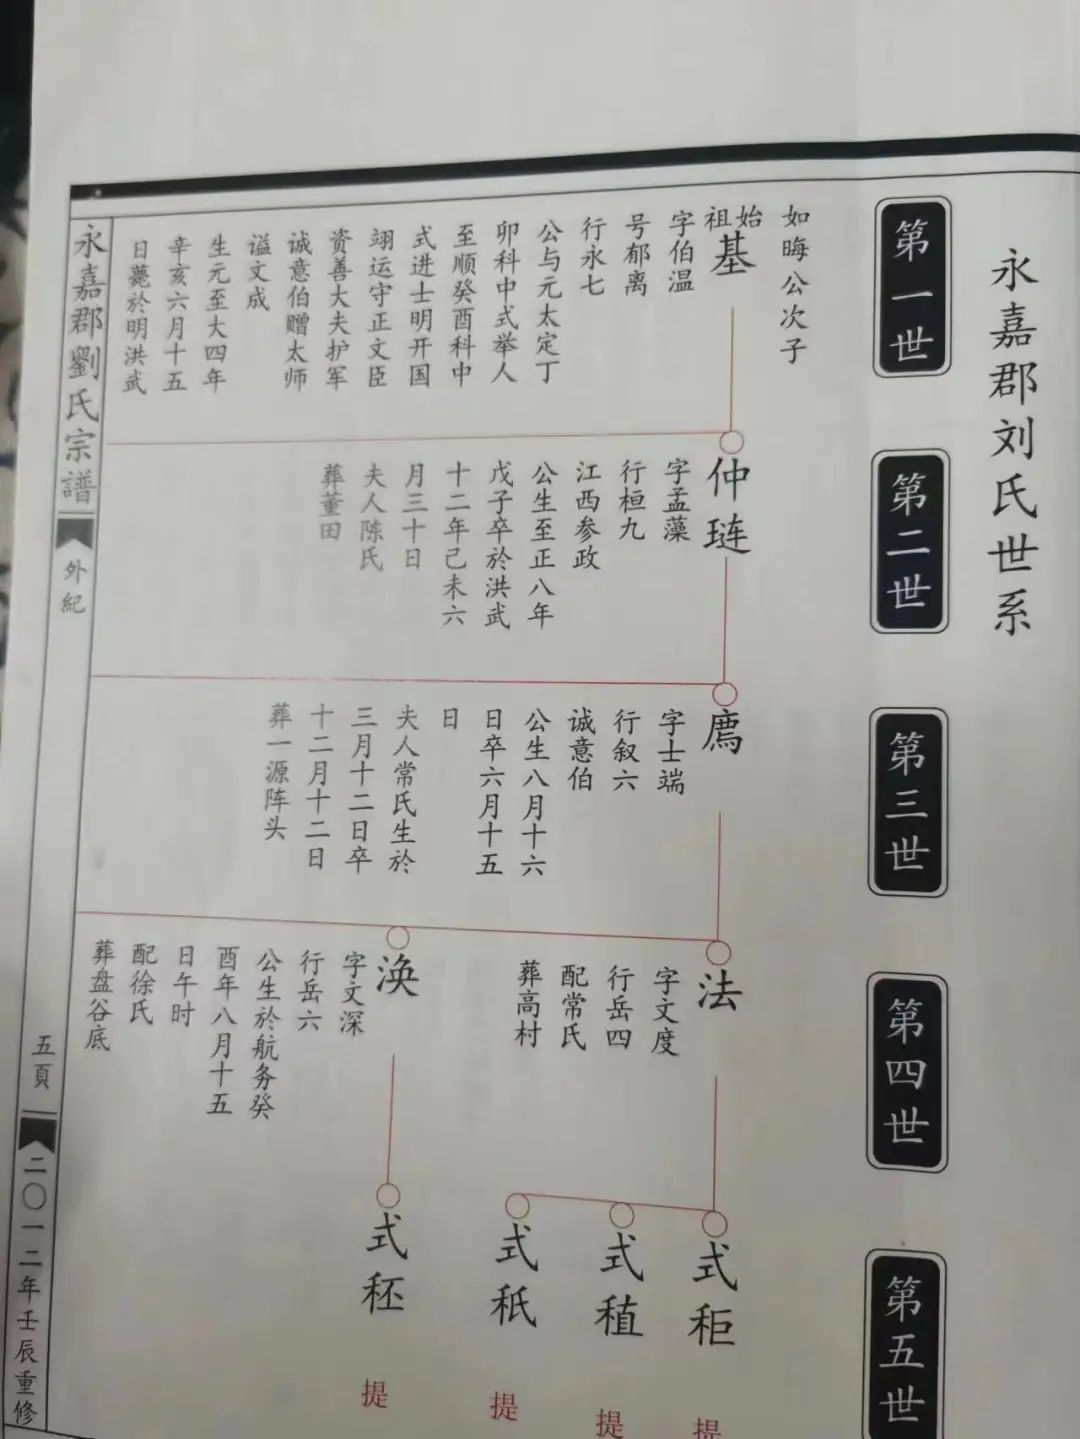 永嘉郡刘氏世系
第一世
如晦公次子
始祖
基
字伯温
号郁离
行永七
公与元太定丁
卯科中式举人
至顺癸酉科中
式进士明开国
翊运守正文臣
资善大夫护军
诚意伯赠太师
谥文成
生元至大四年
辛亥六月十五
日薨於明洪武
第二世
仲琏
字孟藻
行桓九
江西参政
公生至正八年
戊子卒於洪武
十二年己未六
月三十日
夫人陈氏
葬董田
第三世
廌
字士端
行叙六
诚意伯
公生八月十六
日卒六月十五
日
夫人常氏生於
三月十二日卒
十二月十二日
葬一源阵头
第四世
法
字文度
行岳四
配常氏
葬高村
涣
字文深
行岳六
公生於航务癸
酉年八月十五
日午时
配徐氏
葬盘谷底
第五世
式秬
提
式稙
提
式秖
提
式秠
提
永嘉郡劉氏宗譜
外紀
五頁
二〇一二年壬辰重修